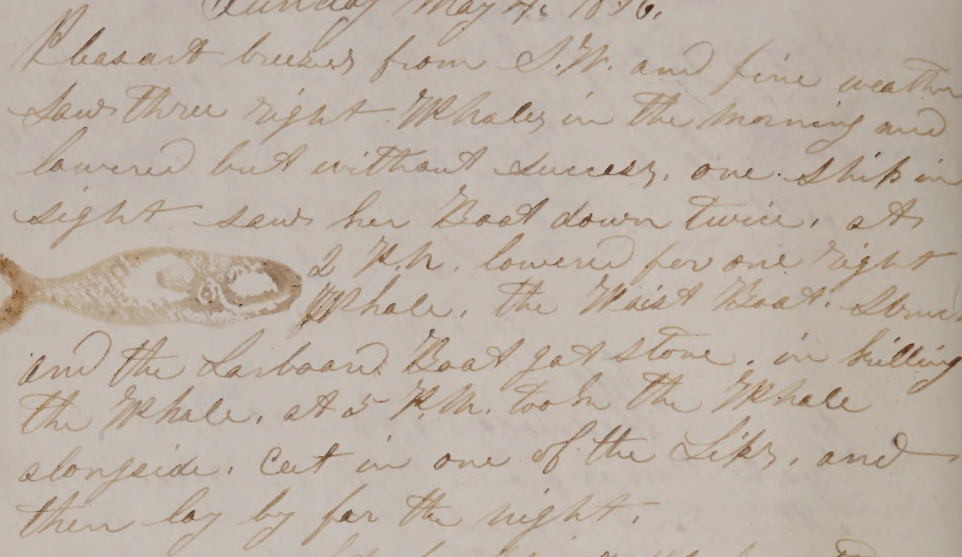 Sunday May 4. 1856.
Pleasant breezes from S.W. and fine weather
Saw three right Whales in the morning and
lowered but without success, one ship in
sight saw her Boat down twice, at
2 P.M. lowered for one right
Whale, the Waist Boat Struck
and the Larboard Boat got stove, in killing
the Whale, at 5 P.M. took the Whale
alongside, cut in one of the Lips, and
then lay by for the night.